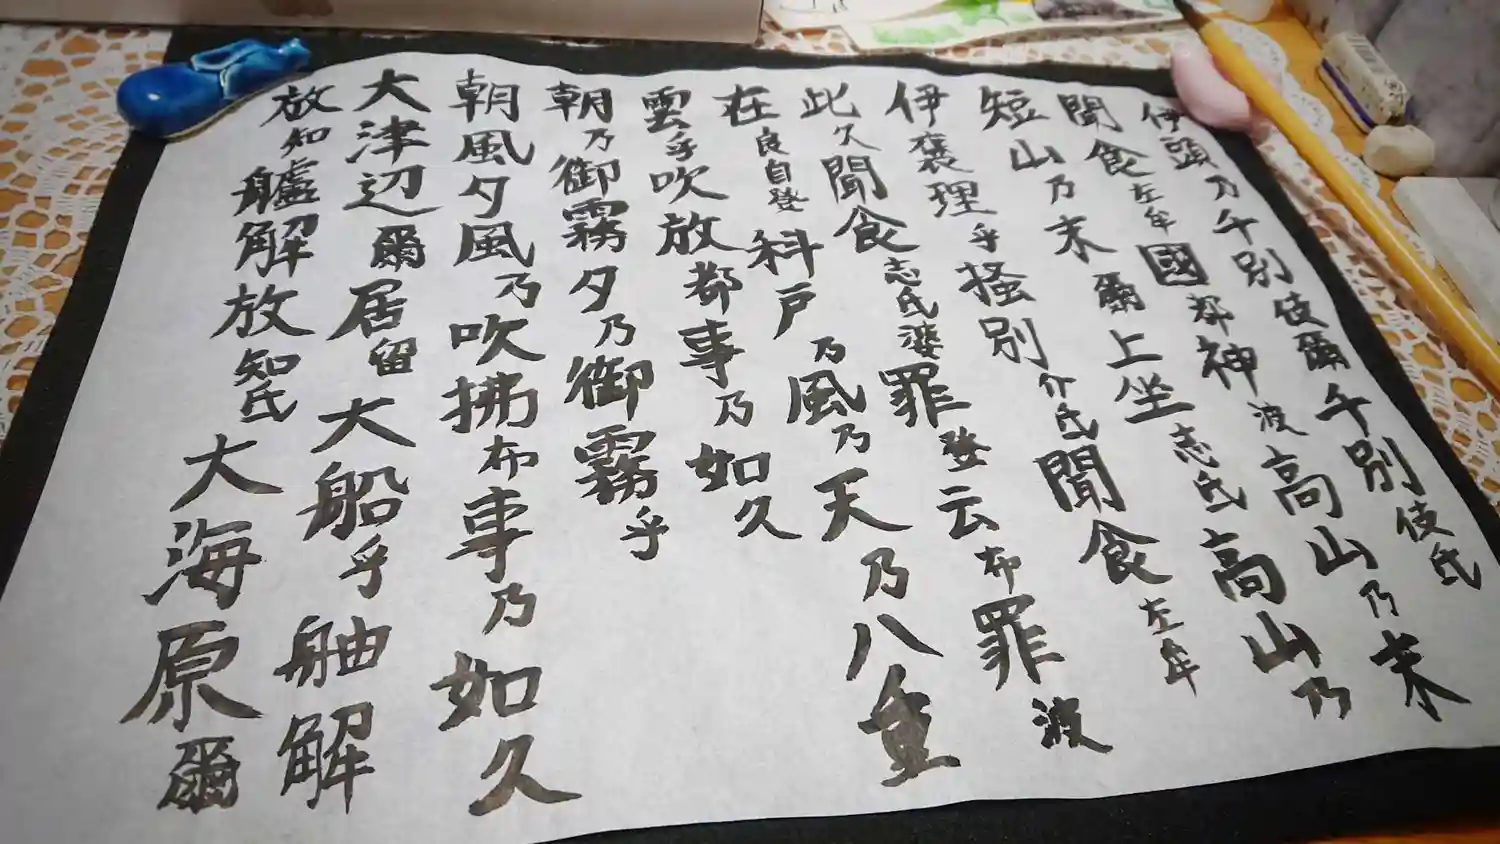 伊頭乃千別伎爾千別伎氐
聞食左牟國都神波高山乃末
短山乃末爾上坐志氐高山乃
伊褒理乎掻別介氐聞食左牟
此久聞食志氐婆罪登云布罪波
在良自登科戸乃風乃天乃八重
雲乎吹放都事乃如久
朝乃御霧夕乃御霧乎
朝風夕風乃吹拂布事乃如久
大津辺爾居留大船乎舳解
放知艫解放知氐大海原爾